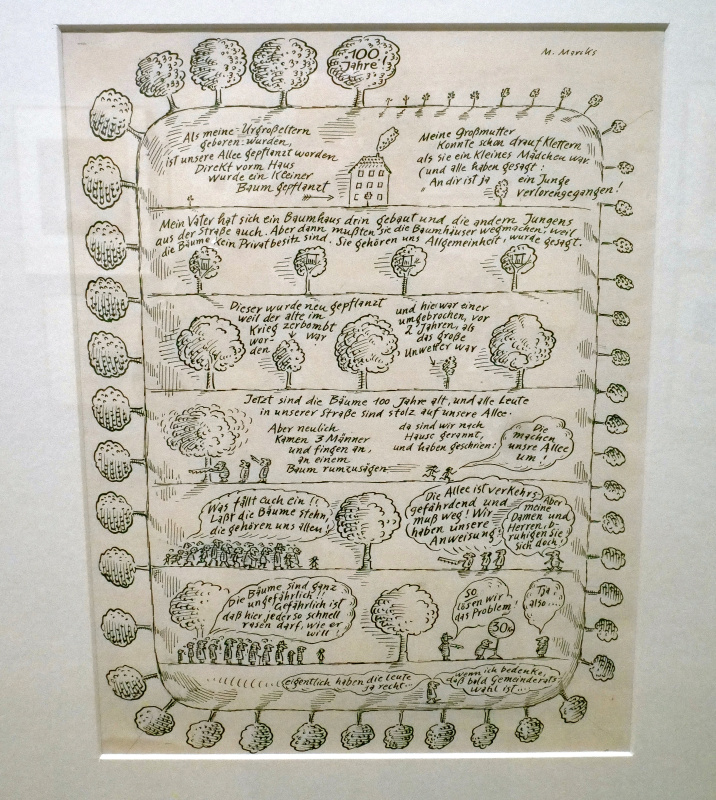 M. Marcks
100
Jahre!
Als meine Urgroßeltern
geboren wurden,
ist unsere Allee gepflanzt worden
Direkt vorm Haus
wurde ein kleiner
Baum gepflanzt
Meine Großmutter
konnte schon drauf klettern
als sie ein kleines Mädchen war
(und alle haben gesagt:
An dir ist ja ein Junge
verlorengegangen!
Mein Vater hat sich ein Baumhaus drin gebaut und die andern Jungens
aus der Straße auch. Aber dann mußten sie die Baumhäuser wegmachen, weil
die Bäume kein Privatbesitz sind. Sie gehören uns Allgemeinheit, wurde gesagt.
Dieser wurde neu gepflanzt
weil der alte im
Krieg zerbombt
wor-
den war
und hier war einer
umgebrochen, vor
2 Jahren, als
das große
Unwetter war
Jetzt sind die Bäume 100 Jahre alt, und alle Leute
in unserer Straße sind stolz auf unsere Allee.
Aber neulich
kamen 3 Männer
und fingen an,
an einem
Baum rumzusägen
da sind wir nach
Hause gerannt,
und haben geschrien:
Die
machen
unsre Allee
um!
Was fällt euch ein!!
Laßt die Bäume stehn,
die gehören uns allen!
Die Allee ist verkehrs-
gefährdend und
muß weg! Wir
haben unsere
Anweisung!
Aber
meine
Damen und
Herren, b-
ruhigen Sie
sich doch!
Die Bäume sind ganz
ungefährlich!!
Gefährlich ist
daß hier jeder so schnell
rasen darf, wie er
will
So
lösen wir
das Problem!
30
Tja
also...
eigentlich haben die Leute
ja recht...
wenn ich bedenke,
daß bald Gemeinderats-
wahl ist...